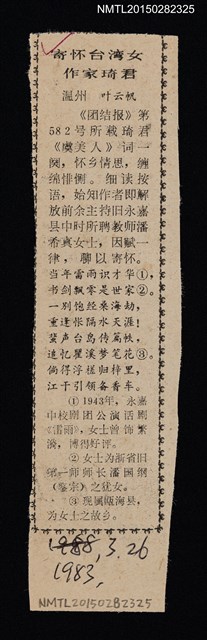 NMTL20150282325
寄怀台湾女
作家琦君
温州 叶云帆
《团结报》第
582号所载琦君
《虞美人》词一
阕，怀乡情思，缠
绵悱恻。细读按
语，始知作者即解
放前余主持旧永嘉
县中时所聘教师潘
希真女士，因赋一
律，聊以寄怀。
当年雷雨识才华①，
书剑飘零是世家②。
一别饱经乘海劫，
重逢怅隔水天涯！
蜚声台岛传篇帙，
追忆瞿溪梦笔花③。
倘得浮槎归梓里，
江干引领备香车。
①1943年，永嘉
中校剧团公演话剧
《雷雨》，女士曾饰繁
漪，博得好评。
②女士为浙省旧
第一师师长潘国纲
（鉴宗）之犹女。
③瞿溪属瓯海县，
为女士之故乡。
1988, 3.26
1983,
NMTL20150282325